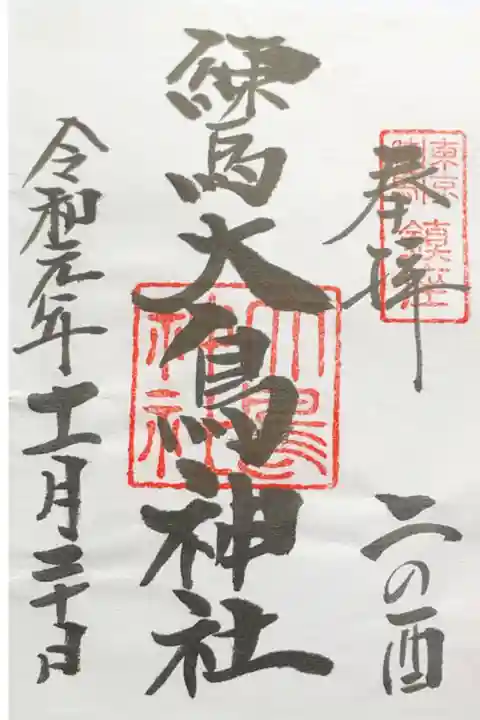 奉拝
二の酉
東京
鎮座
練馬大鳥神社
大鳥
神社
令和元年十一月二十日